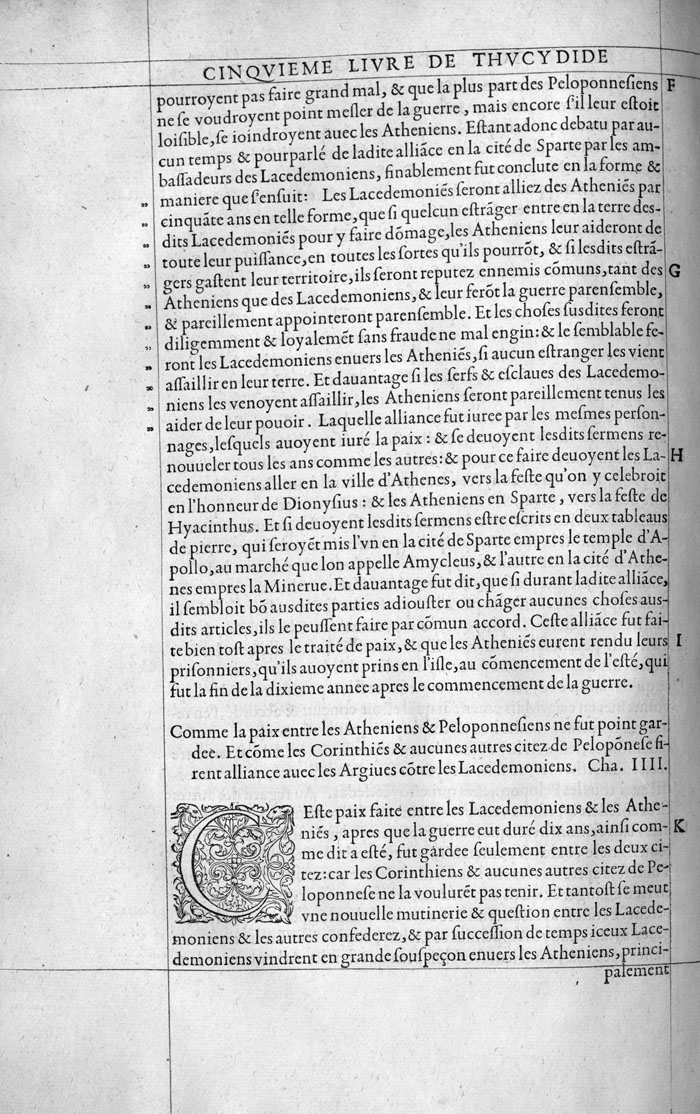 CINQVIEME LIVRE DE THVCYDIDE
pourroyent pas faire grand mal, & que la plus part des Peloponnesiens F
ne se voudroyent point mesler de la guerre, mais encore s'il leur estoit
loisible, se ioindroyent auec les Atheniens. Estant adonc debatu par au-
cun temps & pourparlé de ladite alliãce en la cité de Sparte par les am-
bassadeurs des Lacedemoniens, finablement fut conclute en la forme &
maniere que s'ensuit: Les Lacedemoniẽs seront alliez des Atheniẽs par
„ cinquãte ans en telle forme, que si quelcun estrãger entre en la terre des-
„ dits Lacedemoniẽs pour y faire dõmage, les Atheniens leur aideront de
„ toute leur puissance, en toutes les sortes qu'ils pourrõt, & si lesdits estrã-
„ gers gastent leur territoire, ils seront reputez ennemis cõmuns, tant des G
„ Atheniens que des Lacedemoniens, & leur ferõt la guerre parensemble,
„ & pareillement appointeront parensemble. Et les choses susdites feront
„ diligemment & loyalemẽt sans fraude ne mal engin: & le semblable fe-
„ ront les Lacedemoniens enuers les Atheniẽs, si aucun estranger les vient
„ assaillir en leur terre. Et dauantage si les serfs & esclaues des Lacedemo-
„ niens les venoyent assaillir, les Atheniens seront pareillement tenus les
„ aider de leur pouoir. Laquelle alliance fut iuree par les mesmes person-
nages, lesquels auoyent iuré la paix: & se deuoyent lesdits sermens re-
nouueler tous les ans comme les autres: & pour ce faire deuoyent les La- H
cedemoniens aller en la ville d'Athenes, vers la feste qu'on y celebroit
en l'honneur de Dionysius: & les Atheniens en Sparte, vers la feste de
Hyacinthus. Et si deuoyent lesdits sermens estre escrits en deux tableaus
de pierre, qui seroyẽt mis l'vn en la cité de Sparte empres le temple d'A-
pollo, au marché que lon appelle Amycleus, & l'autre en la cité d'Athe-
nes empres la Minerue. Et dauantage fut dit, que si durant ladite alliãce,
il sembloit bõ ausdites parties adiouster ou chãger aucunes choses aus-
dits articles, ils le peussent faire par cõmun accord. Ceste alliãce fut fai-
te bien tost apres le traité de paix, & que les Atheniẽs eurent rendu leurs I
prisonniers, qu'ils auoyent prins en l'isle, au cõmencement de l'esté, qui
fut la fin de la dixieme annee apres le commencement de la guerre.
Comme la paix entre les Atheniens & Peloponnesiens ne fut point gar-
dee. Et cõme les Corinthiẽs & aucunes autres citez de Pelopõnese fi-
rent alliance auec les Argiues cõtre les Lacedemoniens. Cha. IIII.
CEste paix faite entre les Lacedemoniens & les Athe-
niẽs, apres que la guerre eut duré dix ans, ainsi com- K
me dit a esté, fut gardee seulement entre les deux ci-
tez: car les Corinthiens & aucunes autres citez de Pe-
loponnese ne la voulurẽt pas tenir. Et tantost se meut
vne nouuelle mutinerie & question entre les Lacede-
moniens & les autres confederez, & par succession de temps iceux Lace-
demoniens vindrent en grande souspeçon enuers les Atheniens, princi-
palement